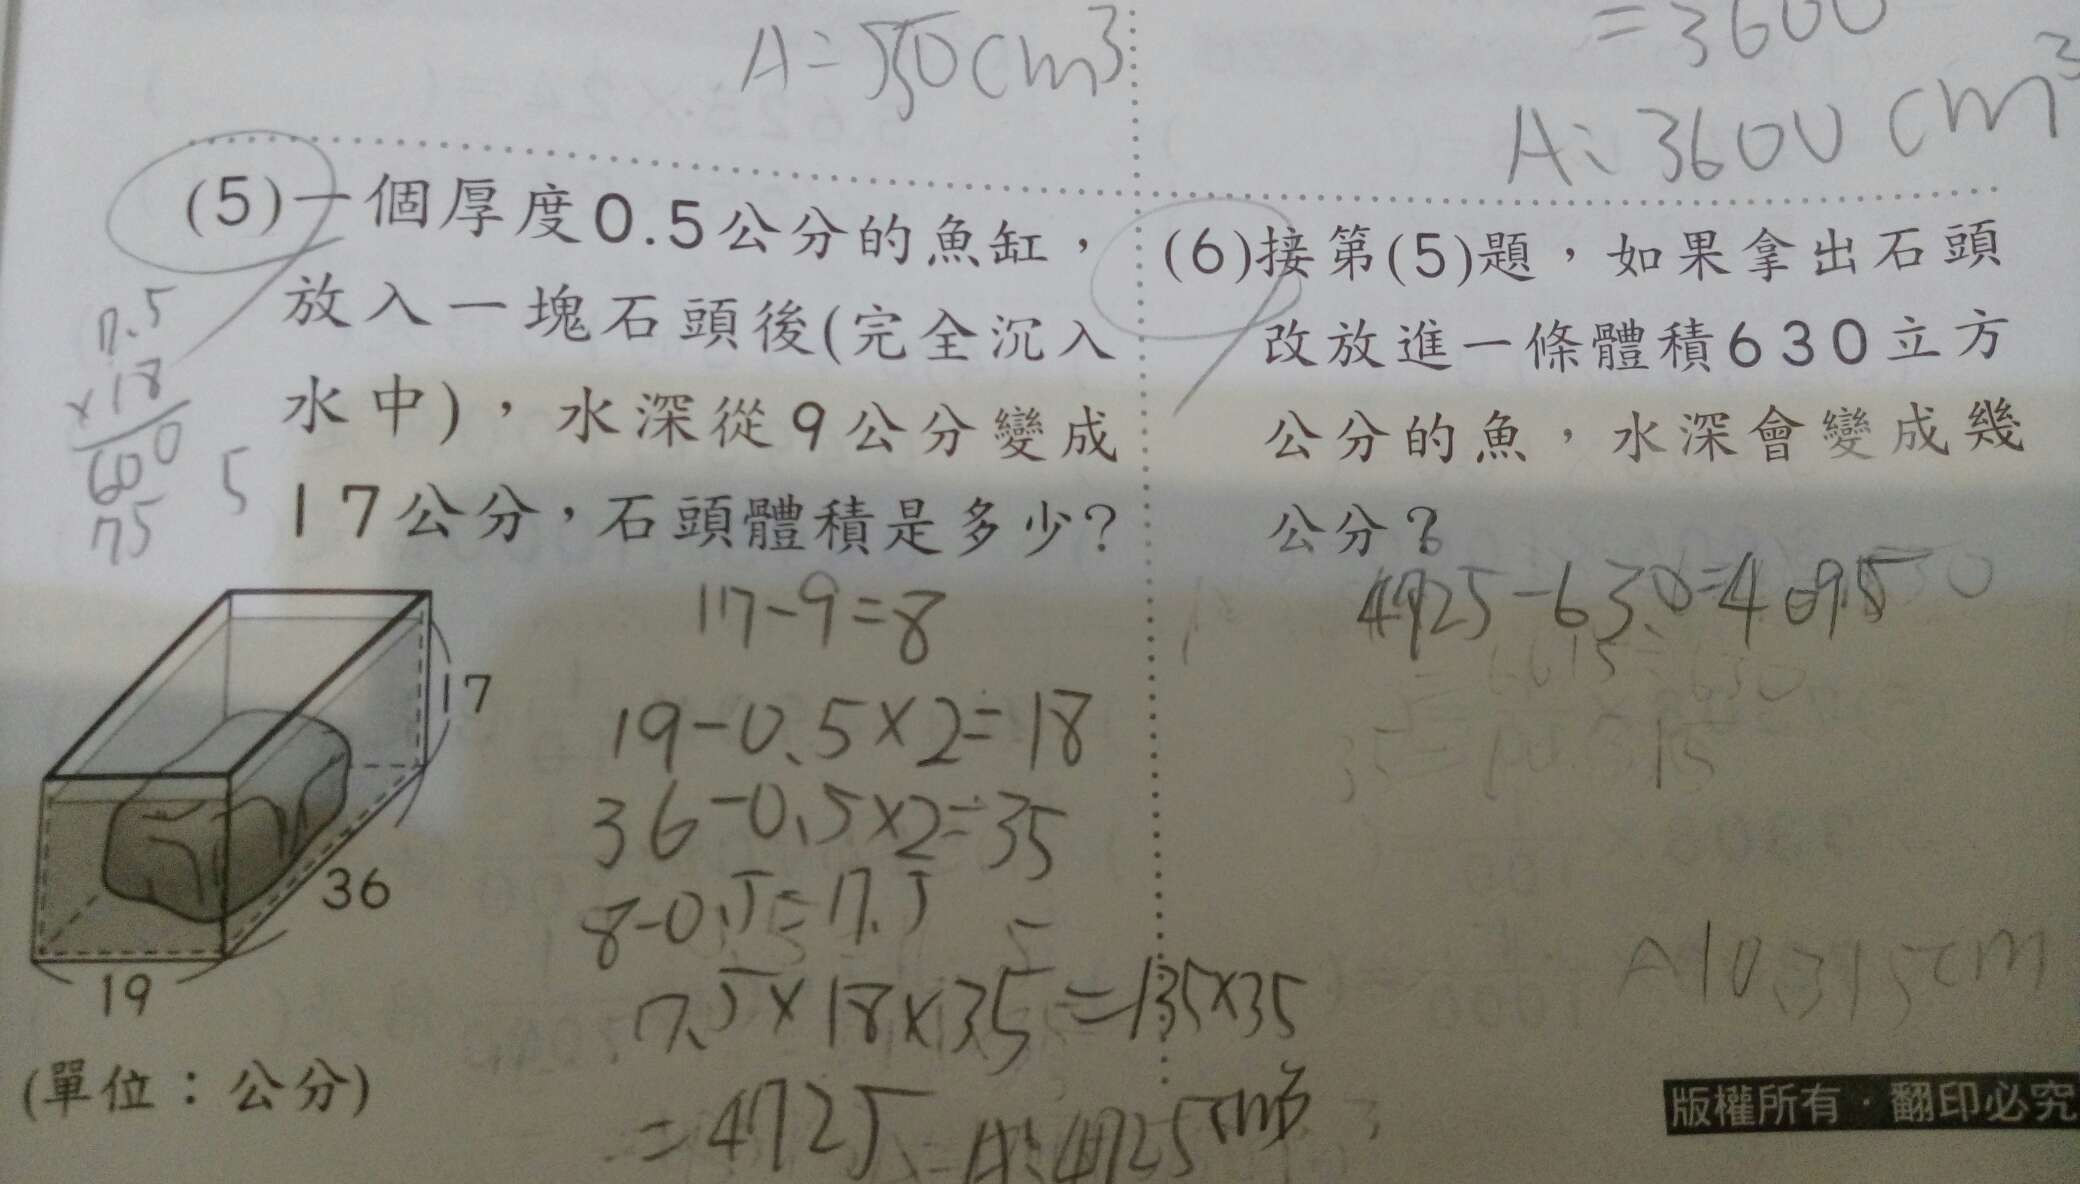 A=550cm³
=3600
A:3600cm³
(5)一個厚度0.5公分的魚缸，
放入一塊石頭後(完全沉入
水中)，水深從9公分變成
17公分，石頭體積是多少?
7.5
×18
600
75
5
17
36
19
(單位：公分)
17-9=8
19-0.5×2=18
36-0.5×2=35
8-0.5=7.5
7.5×18×35=135×35
=4725
A:4725cm³
(6)接第(5)題，如果拿出石頭
改放進一條體積630立方
公分的魚，水深會變成幾
公分？
4725-630=4095
A10.315cm
版權所有・翻印必究